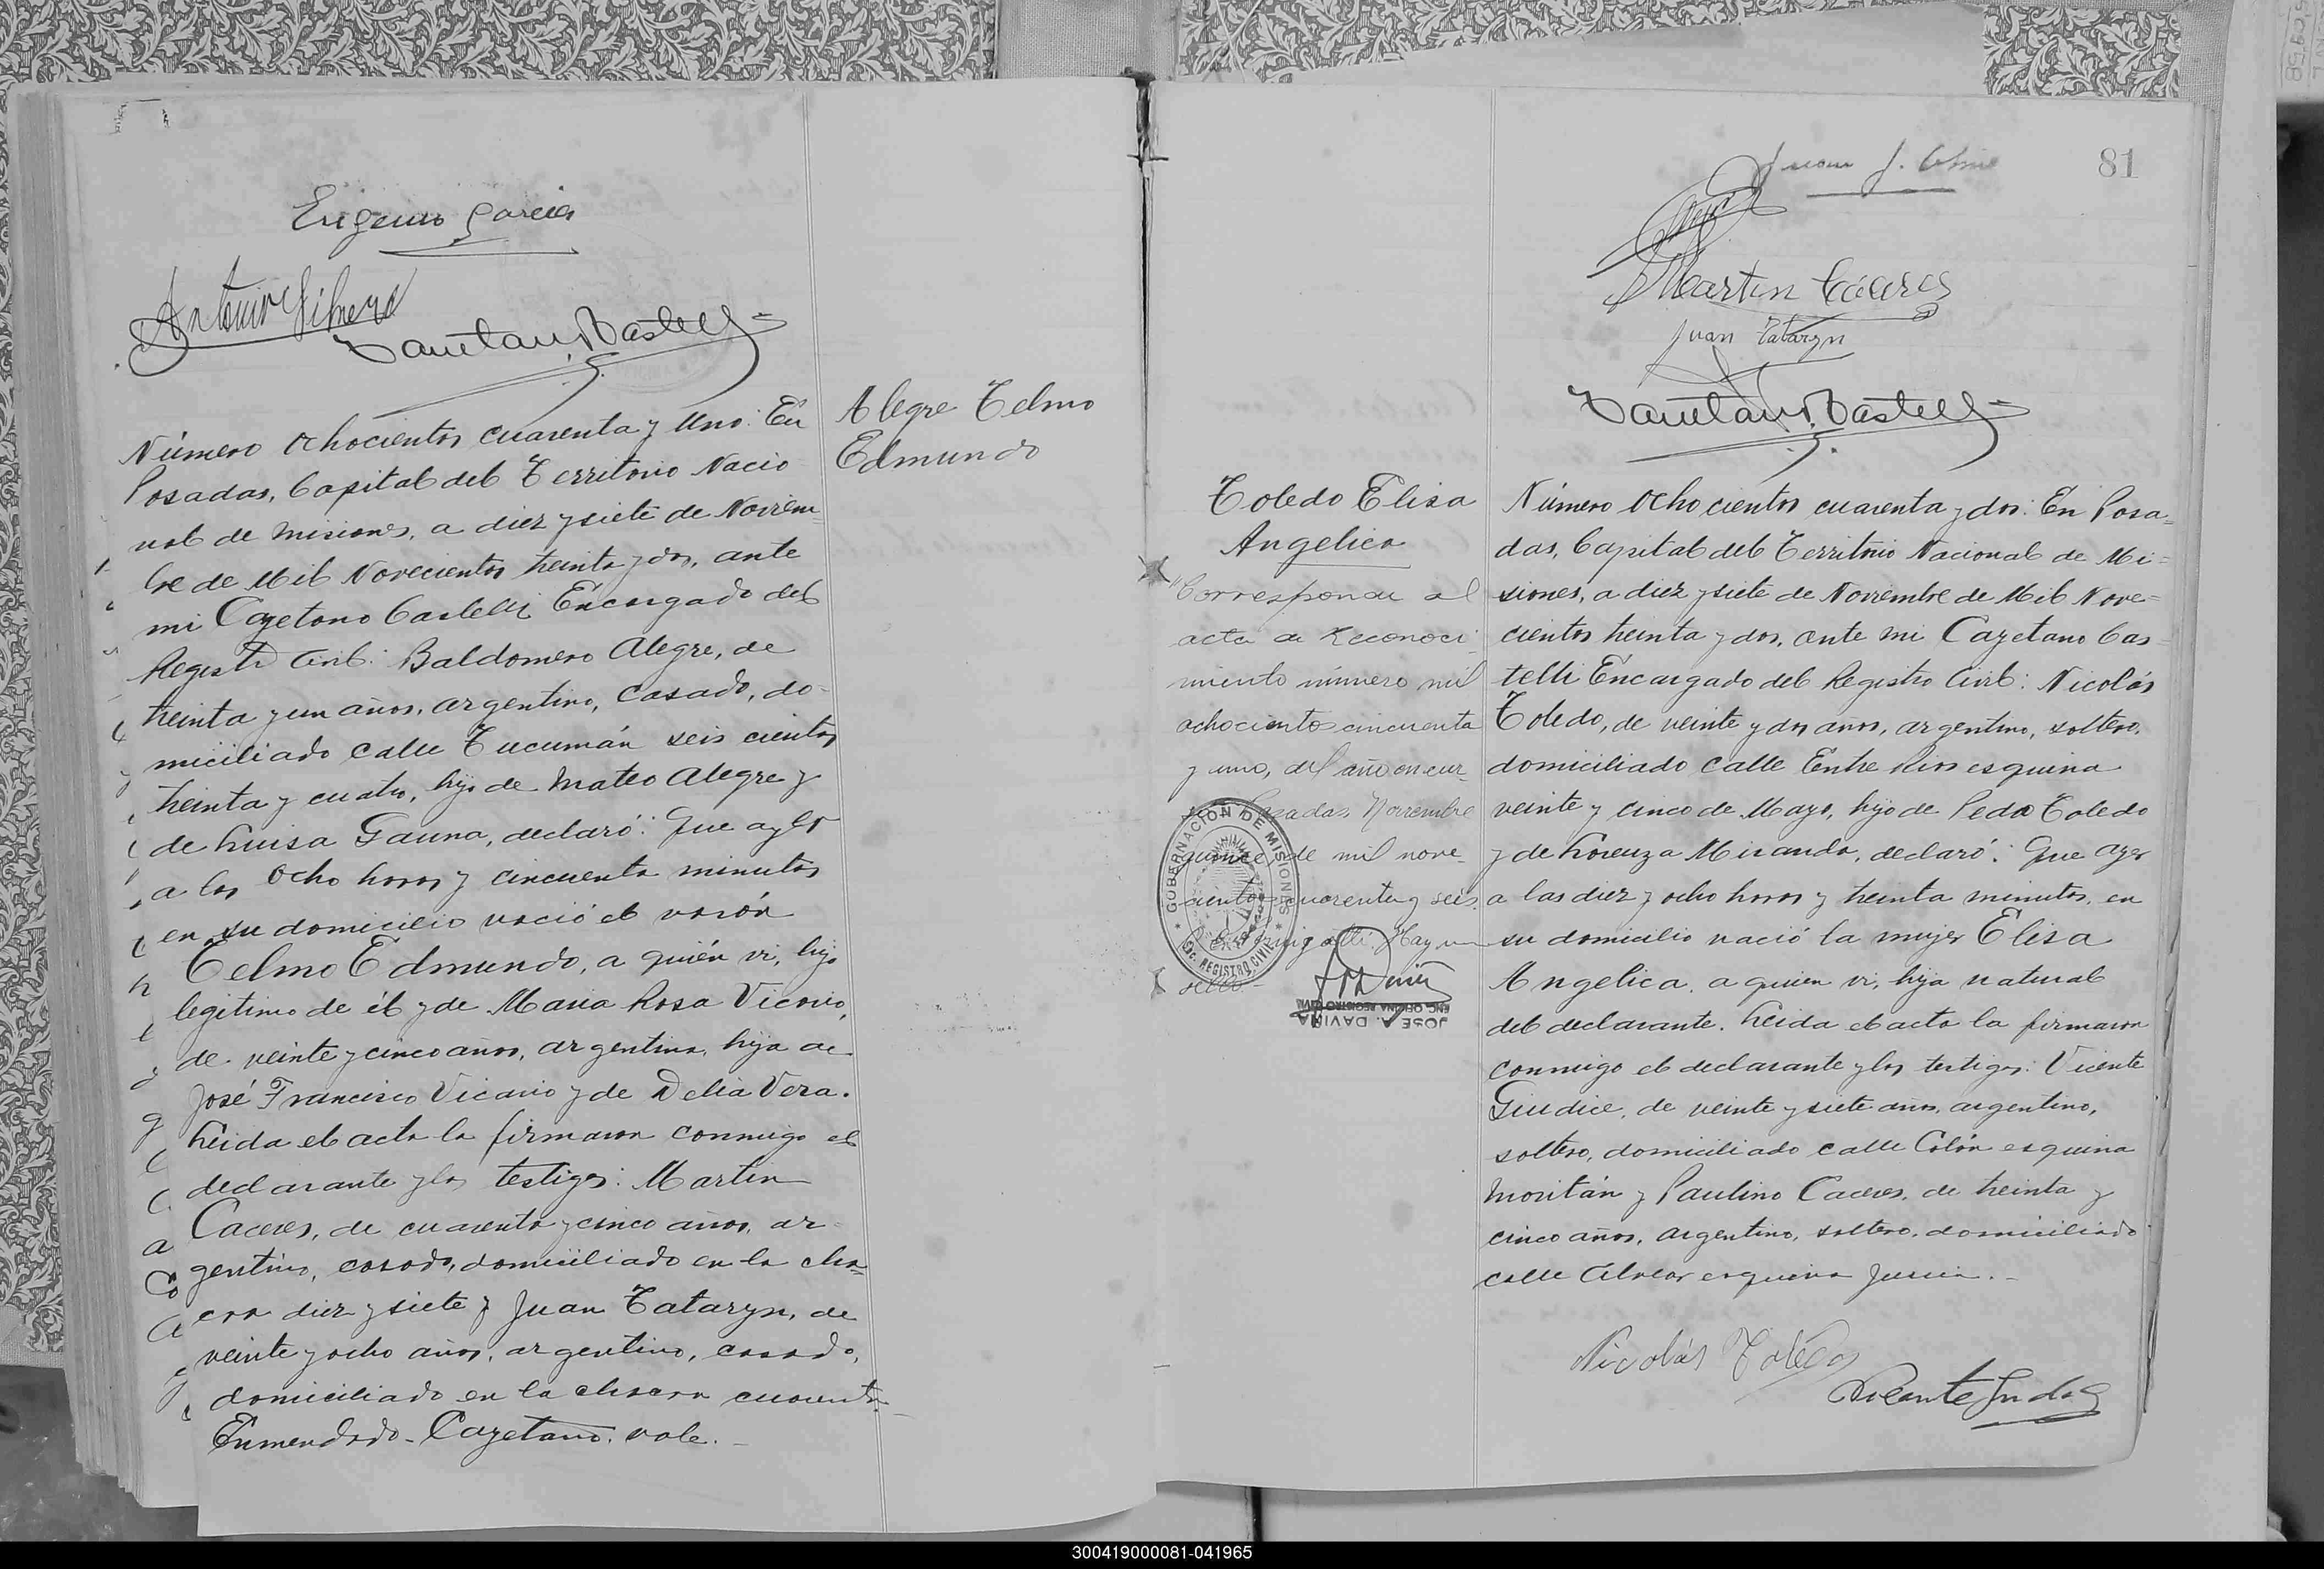 Eugenio Garcia
Antonio Gimenez
Cayetano Castelli
Alegre Telmo
Edmundo
Número Ochocientos cuarenta y Uno: En
Posadas, Capital del Territorio Nacio
nal de Misiones, a diez y siete de Noviem-
bre de Mil Novecientos treinta y dos, ante
mi Cayetano Castelli Encargado del
Registro Civil: Baldomero Alegre, de
treinta y un años, argentino, casado, do-
miciliado calle Tucumán seis cientos
treinta y cuatro, hijo de Mateo Alegre y
de Luisa Gauna, declaró: Que ayer
a las ocho horas y cincuenta minutos
en su domicilio nació el varón
Telmo Edmundo, a quién vi, hijo
legitimo de él y de Maria Rosa Vicario,
de veinte y cinco años, argentina, hija de
José Francisco Vicario y de Delia Vera.
Leida el acta la firmaron conmigo el
declarante y los testigos: Martin
Caceres, de cuarenta y cinco años, ar-
gentino, casado, domiciliado en la cha-
cra diez y siete y Juan Tataryn, de
veinte y ocho años, argentino, casado,
domiciliado en la chacra cuarenta.
Enmendado - Cayetano. vale. -
81
Juan J.
Martin Cáceres
Juan Tataryn
Cayetano Castelli
Toledo Elisa
Angelica
"Corresponde al
acta de Reconoci-
miento número mil
ochocientos cincuenta
y uno, del año en cur-
so. Posadas, Noviembre
quince de mil nove-
cientos cuarenta y seis.
Hay un
sello.-
GOBERNACION DE MISIONES
REGISTRO CIVIL
JOSE A. DAVIÑA
ENC. OFICINA REGISTRO CIVIL
Número Ochocientos cuarenta y dos: En Posa-
das, Capital del Territorio Nacional de Mi-
siones, a diez y siete de Noviembre de Mil Nove-
cientos treinta y dos, ante mi Cayetano Cas-
telli Encargado del Registro Civil: Nicolás
Toledo, de veinte y dos años, argentino, soltero,
domiciliado calle Entre Rios esquina
veinte y cinco de Mayo, hijo de Pedro Toledo
y de Lorenza Miranda, declaró: Que ayer
a las diez y ocho horas y treinta minutos, en
su domicilio nació la mujer Elisa
Angelica, a quien vi, hija natural
del declarante. Leida el acta la firmaron
conmigo el declarante y los testigos: Vicente
Giudice, de veinte y siete años, argentino,
soltero, domiciliado calle Colón esquina
Moritán y Paulino Caceres, de treinta y
cinco años, argentino, soltero, domiciliado
calle Alvear esquina Junin. -
Nicolás Toledo
Vicente Giudice
300419000081-041965